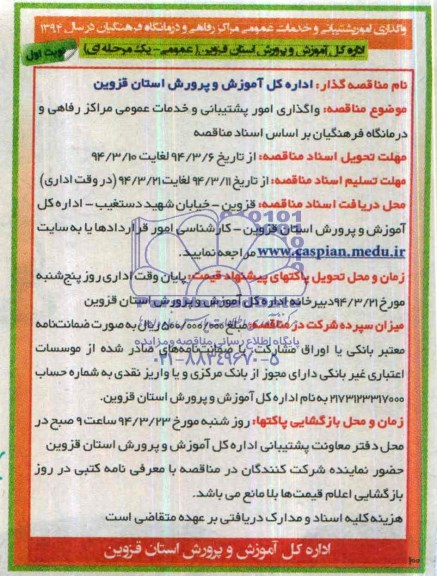 واگذاری امور پشتیبانی و خدمات عمومی مراکز رفاهی و درمانگاه فرهنگیان در سال ۱۳۹۴
اداره کل آموزش و پرورش استان قزوین (عمومی- یک مرحله ای)
نوبت اول
نام مناقصه گذار: اداره کل آموزش و پرورش استان قزوین
موضوع مناقصه: واگذاری امور پشتیبانی و خدمات عمومی مراکز رفاهی و
درمانگاه فرهنگیان بر اساس اسناد مناقصه
مهلت تحویل اسناد مناقصه: از تاریخ ۹۴/۳/۶ لغایت ۹۴/۳/۱۰
مهلت تسلیم اسناد مناقصه: از تاریخ ۹۴/۳/۱۱ لغایت ۹۴/۳/۲۱ (در وقت اداری)
محل دریافت اسناد مناقصه: قزوین - خیابان شهید دستغیب - اداره کل
آموزش و پرورش استان قزوین - کارشناسی امور قراردادها یا به سایت
www.caspian.medu.ir مراجعه نمایید.
زمان و محل تحویل پاکتهای پیشنهاد قیمت: پایان وقت اداری روز پنج‌شنبه
مورخ ۹۴/۳/۲۱ دبیرخانه اداره کل آموزش و پرورش استان قزوین
میزان سپرده شرکت در مناقصه: مبلغ ۵۰۰/۰۰۰/۰۰۰ ریال به صورت ضمانت‌نامه
معتبر بانکی یا اوراق مشارکت یا ضمانت‌نامه‌های صادر شده از موسسات
اعتباری غیر بانکی دارای مجوز از بانک مرکزی و یا واریز نقدی به شماره حساب
۲۱۷۳۱۲۳۳۱۷۰۰۰ به نام اداره کل آموزش و پرورش استان قزوین.
زمان و محل بازگشایی پاکتها: روز شنبه مورخ ۹۴/۳/۲۳ ساعت ۹ صبح در
محل دفتر معاونت پشتیبانی اداره کل آموزش و پرورش استان قزوین
حضور نماینده شرکت کنندگان در مناقصه با معرفی نامه کتبی در روز
بازگشایی اعلام قیمت‌ها بلا مانع می باشد.
هزینه کلیه اسناد و مدارک دریافتی بر عهده متقاضی است
اداره کل آموزش و پرورش استان قزوین
پایگاه اطلاع رسانی مناقصه و مزایده
۰۲۱-۸۸۳۴۹۶۷۰-۵